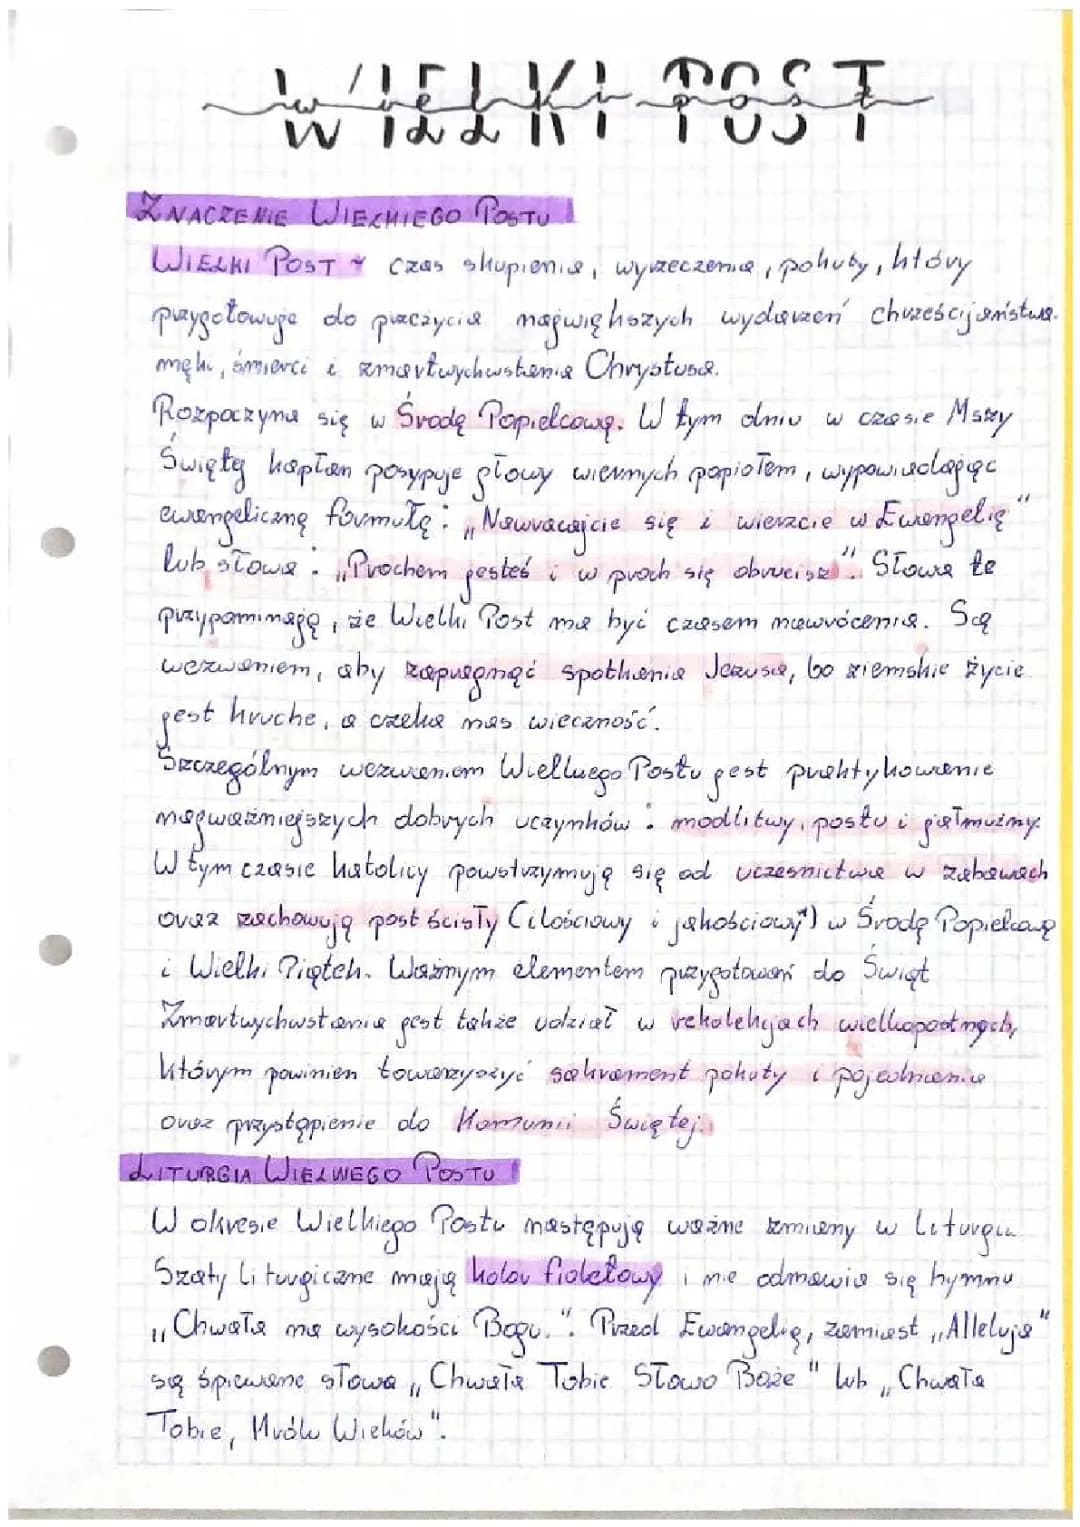 WIELKI POST
ZNACZENIE WIELKIEGO POSTU
WIELKI POST - czas skupienia, wyrzeczenia, pokuty, który
przygotowuje do przeżycia największych wydarzeń chrześcijaństwa.
męki, śmierci i zmartwychwstania Chrystusa.
Rozpoczyna się w Środę Popielcową. W tym dniu w czasie Mszy
Świętej kapłan posypuje głowy wiernych popiołem, wypowiadając
ewangeliczną formułę: „Nawracajcie się i wierzcie w Ewangelię"
lub słowa: „Prochem jesteś i w proch się obrócisz". Słowa te
przypominają, że Wielki Post ma być czasem nawrócenia. Są
wezwaniem, aby zapragnąć spotkania Jezusa, bo ziemskie życie
jest kruche, a czeka nas wieczność.
Szczególnym wezwaniem Wielkiego Postu jest praktykowanie
najważniejszych dobrych uczynków: modlitwy, postu i jałmużny.
W tym czasie katolicy powstrzymują się od uczestnictwa w zabawach
oraz zachowują post ścisły (ilościowy i jakościowy) w Środę Popielcową
i Wielki Piątek. Ważnym elementem przygotowań do Świąt
Zmartwychwstania jest także udział w rekolekcjach wielkopostnych,
którym powinien towarzyszyć sakrament pokuty i pojednania
oraz przystąpienie do Komunii Świętej.
LITURGIA WIELKIEGO POSTU
W okresie Wielkiego Postu następują ważne zmiany w liturgii.
Szaty liturgiczne mają kolor fioletowy i nie odmawia się hymnu
„Chwała na wysokości Bogu.". Przed Ewangelią, zamiast „Alleluja"
są śpiewane słowa „Chwała Tobie Słowo Boże" lub „Chwała
Tobie, Królu Wieków".